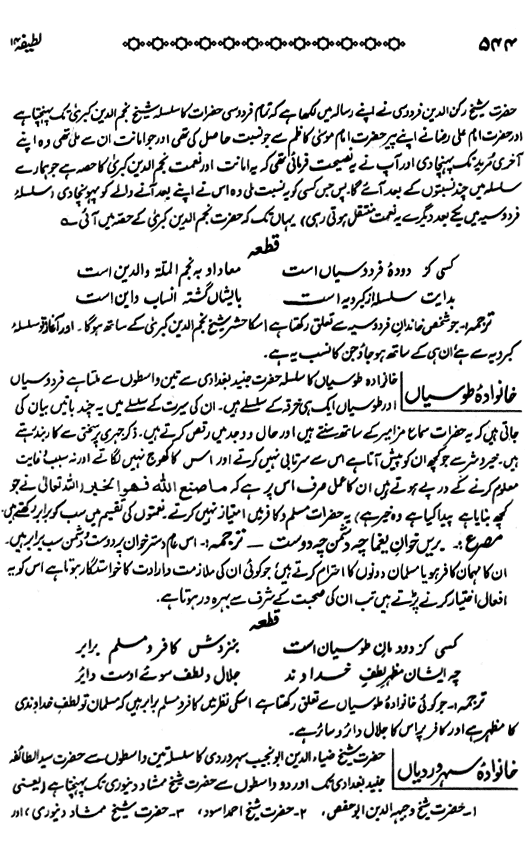 ۵۴۴ لطیفہ ۱۴
حضرت شیخ رکن الدین فردوسی نے اپنے رسالہ میں لکھا ہے کہ تمام فردوسی حضرات کا سلسلہ شیخ نجم الدین کبریٰ تک پہنچتا ہے
اور حضرت امام علی رضا نے اپنے پیر حضرت امام موسیٰ کاظم سے جو نسبت حاصل کی تھی اور جو امانت ان سے ملی تھی وہ اپنے
آخری مرید تک پہنچا دی اور آپ نے یہ نصیحت فرمائی تھی کہ یہ امانت اور نعمت نجم الدین کبریٰ کا حصہ ہے جو ہمارے
سلسلہ میں چند نسبتوں کے بعد آئے گا۔ پس جس کسی کو یہ نسبت ملی وہ اس نے اپنے بعد آنے والے کو پہونچا دی (سلسلۂ
فردوسیہ میں یکے بعد دیگرے یہ نعمت منتقل ہوتی رہی) یہاں تک کہ حضرت نجم الدین کبریٰ کے حصہ میں آئی۔
قطعہ
کسی کز دودۂ فردوسیاں است معاد او بہ نجم الملۃ والدین است
بدایت سلسلہ از کبرویہ است بایشاں گشتہ انساب و این است
ترجمہ:- جو شخص خاندان فردوسیہ سے تعلق رکھتا ہے اسکا حشر شیخ نجم الدین کبریٰ کے ساتھ ہوگا۔ اور آغاز تو سلسلۂ
کبرویہ سے ہے ان ہی کے ساتھ ہو جاؤ جن کا نسب یہ ہے۔
خانوادۂ طوسیاں
خانوادہ طوسیاں کا سلسلہ حضرت جنید بغدادی سے تین واسطوں سے ملتا ہے فردوسیاں
اور طوسیاں ایک ہی خرقہ کے سلسلے ہیں۔ ان کی سیرت کے سلسلے میں یہ چند باتیں بیان کی
جاتی ہیں کہ یہ حضرات سماع مزامیر کے ساتھ سنتے ہیں اور حال و وجد میں رقص کرتے ہیں۔ ذکر جہری پر سختی سے کاربند رہتے
ہیں۔ خیر و شر سے جو کچھ ان کو پیش آتا ہے اس سے سرتابی نہیں کرتے اور اس کا کھوج نہیں لگاتے اور نہ سبب و غایت
معلوم کرنے کے درپے ہوتے ہیں ان کا عمل صرف اس پر ہے کہ ما صنع اللہ فھو الخیر (اللہ تعالیٰ نے جو
کچھ بنایا ہے پیدا کیا ہے وہ خیر ہے) یہ حضرات مسلم و کافر میں امتیاز نہیں کرتے۔ نعمتوں کی تقسیم میں سب کو برابر رکھتے ہیں۔
مصرع :- بریں خوان یغما چہ دشمن چہ دوست — ترجمہ:- اس عام دسترخوان پر دوست و دشمن سب برابر ہیں۔
ان کا مہمان کافر ہو یا مسلمان دونوں کا احترام کرتے ہیں؛ جو کوئی ان کی ملازمت و ارادت کا خواستگار ہوتا ہے اس کو یہ
افعال اختیار کرنے پڑتے ہیں تب ان کی صحبت کے شرف سے بہرہ ور ہوتا ہے۔
قطعہ
کسی کز دودمان طوسیان است بنزدش کافر و مسلم برابر
چہ ایشان مظہر لطف خداوند جلال و لطف سوئے اوست دائر
ترجمہ:- جو کوئی خانوادۂ طوسیاں سے تعلق رکھتا ہے اسکی نظر میں کافر و مسلم برابر ہیں کہ مسلمان تو لطف خداوندی
کا مظہر ہے اور کافر پر اس کا جلال دائر و سائر ہے۔
خانوادۂ سہروردیاں
حضرت شیخ ضیاء الدین ابو نجیب سہروردی کا سلسلہ تین واسطوں سے حضرت سید الطائفہ
جنید بغدادی تک اور دو واسطوں سے حضرت شیخ ممشاد دینوری تک پہنچتا ہے (یعنی
۱- حضرت شیخ وجیہہ الدین ابو حفص، ۲- حضرت شیخ احمد اسود، ۳- حضرت شیخ ممشاد دینوری، اور